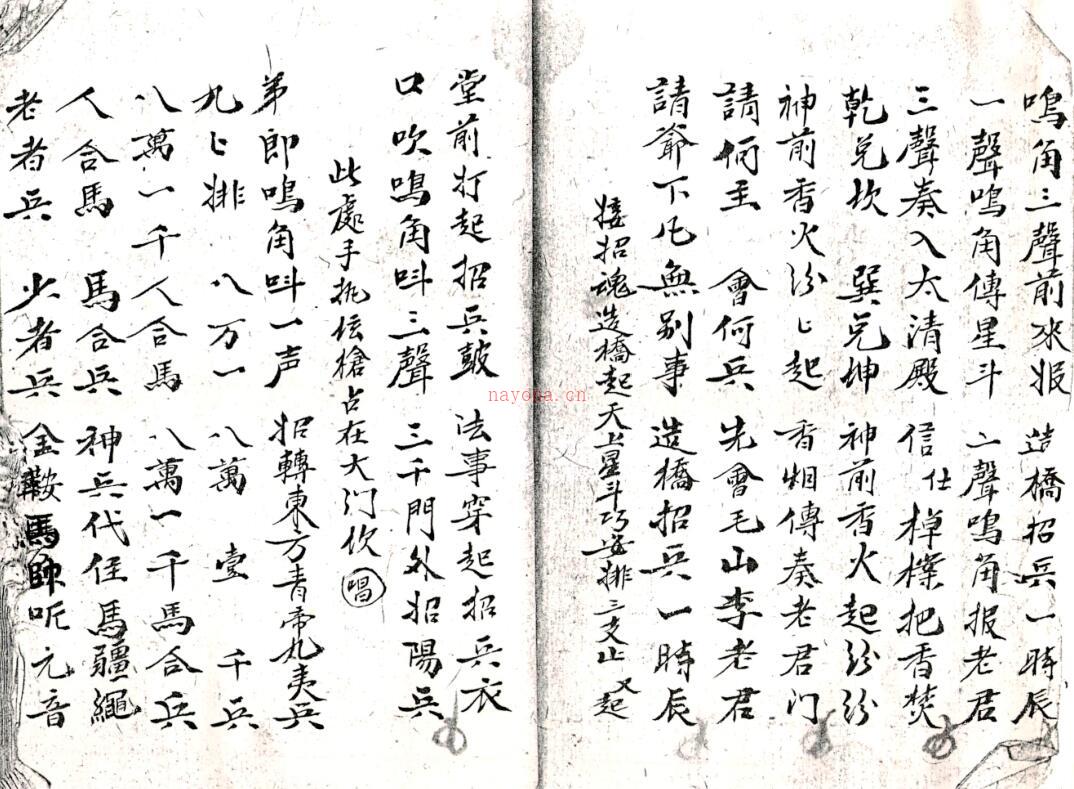 鳴角三聲前來报 造橋招兵一時辰
一聲鳴角傳星斗 二聲鳴角报老君
三聲奏入太清殿 信仕 把香焚
乾兌坎 巽兌坤 神前香火起纷纷
神前香火纷〻起 香烟傳奏老君门
請何王 會何兵 先會毛山李老君
請爺下凡無别事 造橋招兵一時辰
接招魂造橋起天上星斗巧安排三支止又起
堂前打起招兵鼓 法事穿起招兵衣
口吹鳴角叫三聲 三千門外招陽兵
此處手执坛槍占在大门坎 唱
弟郎鳴角叫一声 招轉東方青帝九夷兵
九〻排 八万一 八萬 壹 千兵
八萬一千人合馬 八萬一千馬合兵
人合馬 馬合兵 神兵代任馬疆繩
老者兵 少者兵 金鞍馬 元音
nayona.cn